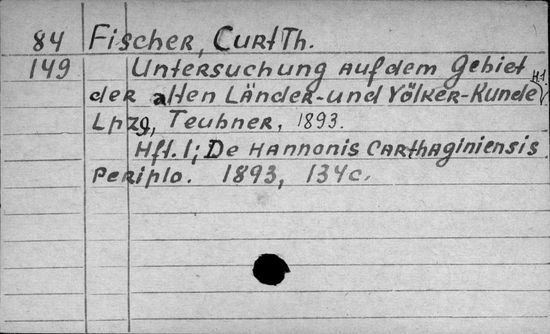 84 Fischer, Curt Th.
149 Untersuchung auf dem Gebiet H.1
der alten Länder- und Völker-Kunde
Lpzg, Teubner, 1893.
Hft. 1; De Hannonis Carthaginiensis
Periplo. 1893, 134c.